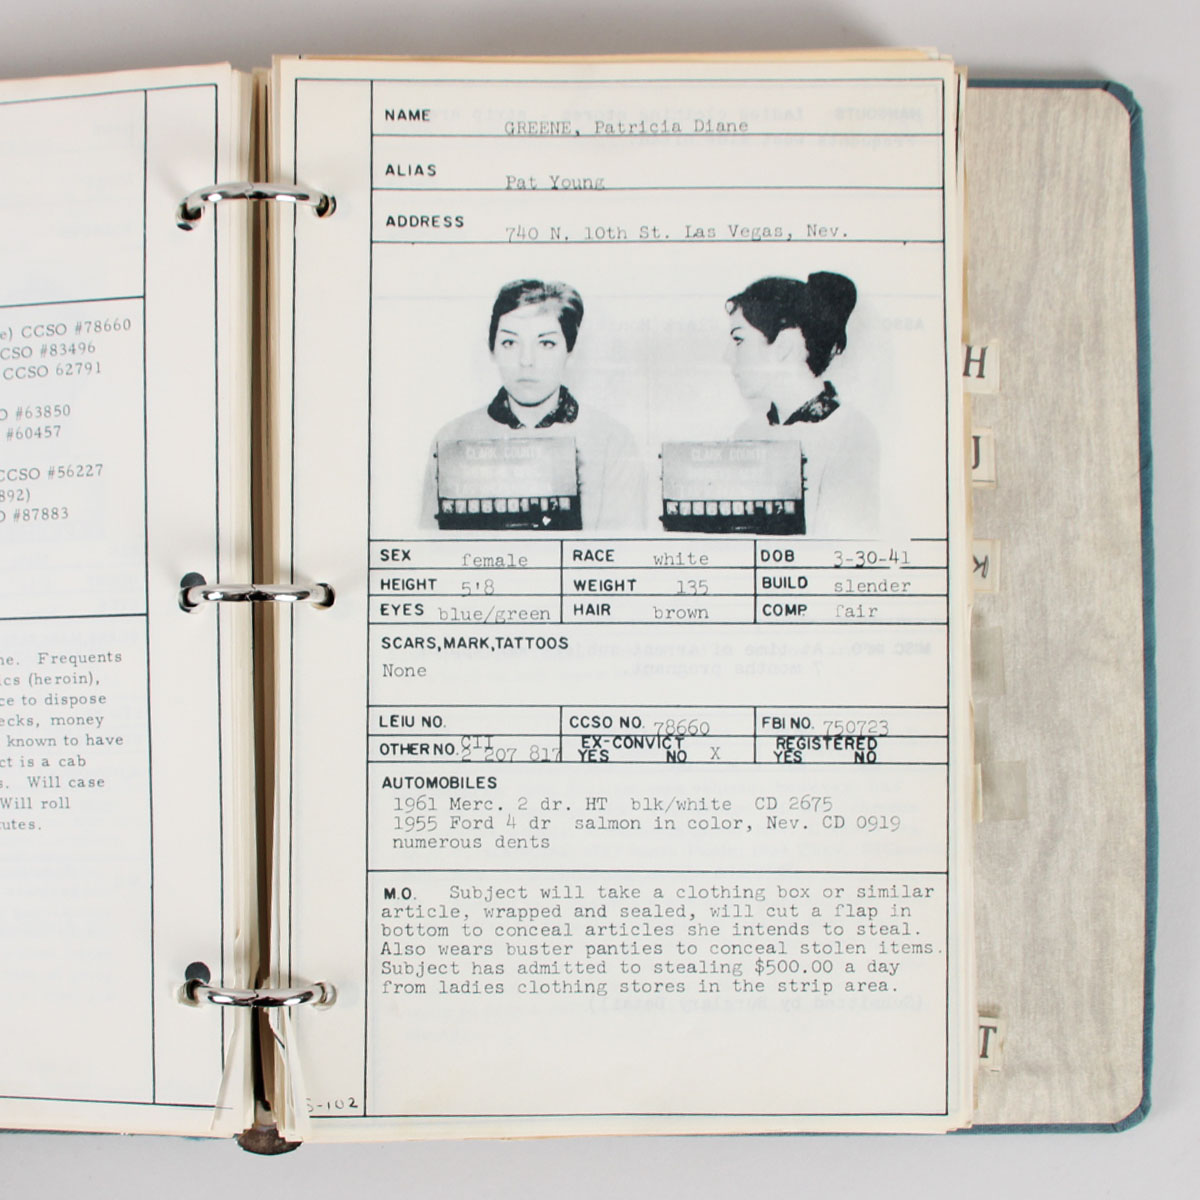 e) CCSO #78660
CSO #83496
CCSO 62791
O #63850
#60457
CCSO #56227
892)
O #87883
ne. Frequents
ics (heroin),
ce to dispose
ecks, money
known to have
ct is a cab
s. Will case
Will roll
tutes.
NAME GREENE, Patricia Diane
ALIAS Pat Young
ADDRESS 740 N. 10th St. Las Vegas, Nev.
CLARK COUNTY CLARK COUNTY
SEX female RACE white DOB 3-30-41
HEIGHT 5'8 WEIGHT 135 BUILD slender
EYES blue/green HAIR brown COMP. fair
SCARS,MARK,TATTOOS
None
LEIU NO. CCSO NO. 78660 FBI NO. 750723
OTHER NO. CII 2 207 817 EX-CONVICT YES NO X REGISTERED YES NO
AUTOMOBILES
1961 Merc. 2 dr. HT blk/white CD 2675
1955 Ford 4 dr salmon in color, Nev. CD 0919
numerous dents
M.O. Subject will take a clothing box or similar
article, wrapped and sealed, will cut a flap in
bottom to conceal articles she intends to steal.
Also wears buster panties to conceal stolen items.
Subject has admitted to stealing $500.00 a day
from ladies clothing stores in the strip area.
S-102
H
J
K
T